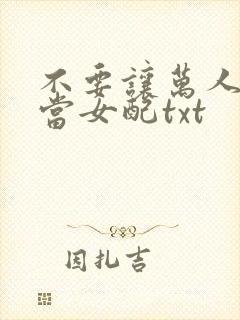 不要讓萬人
當女配txt
因扎吉